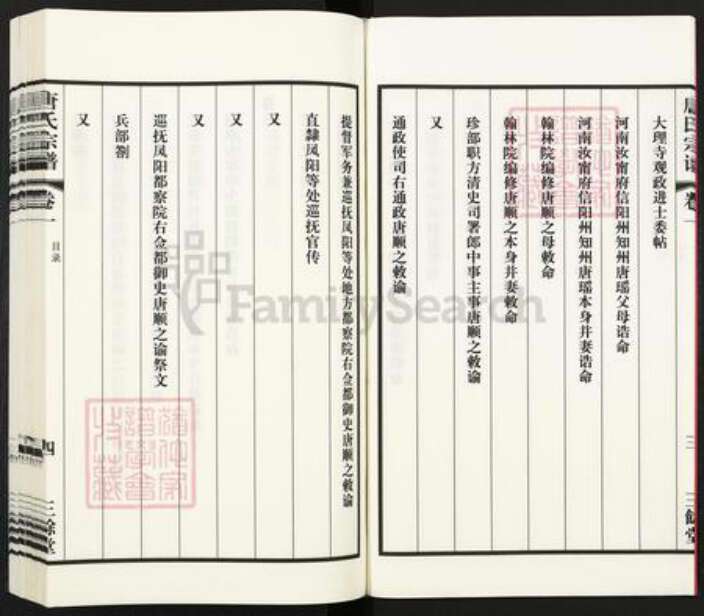 唐氏宗谱 卷一
三
三餘堂
大理寺观政进士委帖
河南汝甯府信阳州知州唐瑶父母诰命
河南汝甯府信阳州知州唐瑶本身并妻诰命
翰林院编修唐顺之母敕命
翰林院编修唐顺之本身并妻敕命
珍部职方清史司署郎中事主事唐顺之敕谕
又
通政使司右通政唐顺之敕谕
提督军务兼巡抚凤阳等处地方都察院右佥都御史唐顺之敕谕
直隸凤阳等处巡抚官传
又
又
又
巡抚凤阳都察院右佥都御史唐顺之谕祭文
兵部劄
又
唐氏宗譜 卷一 目录
四
三餘堂
FamilySearch